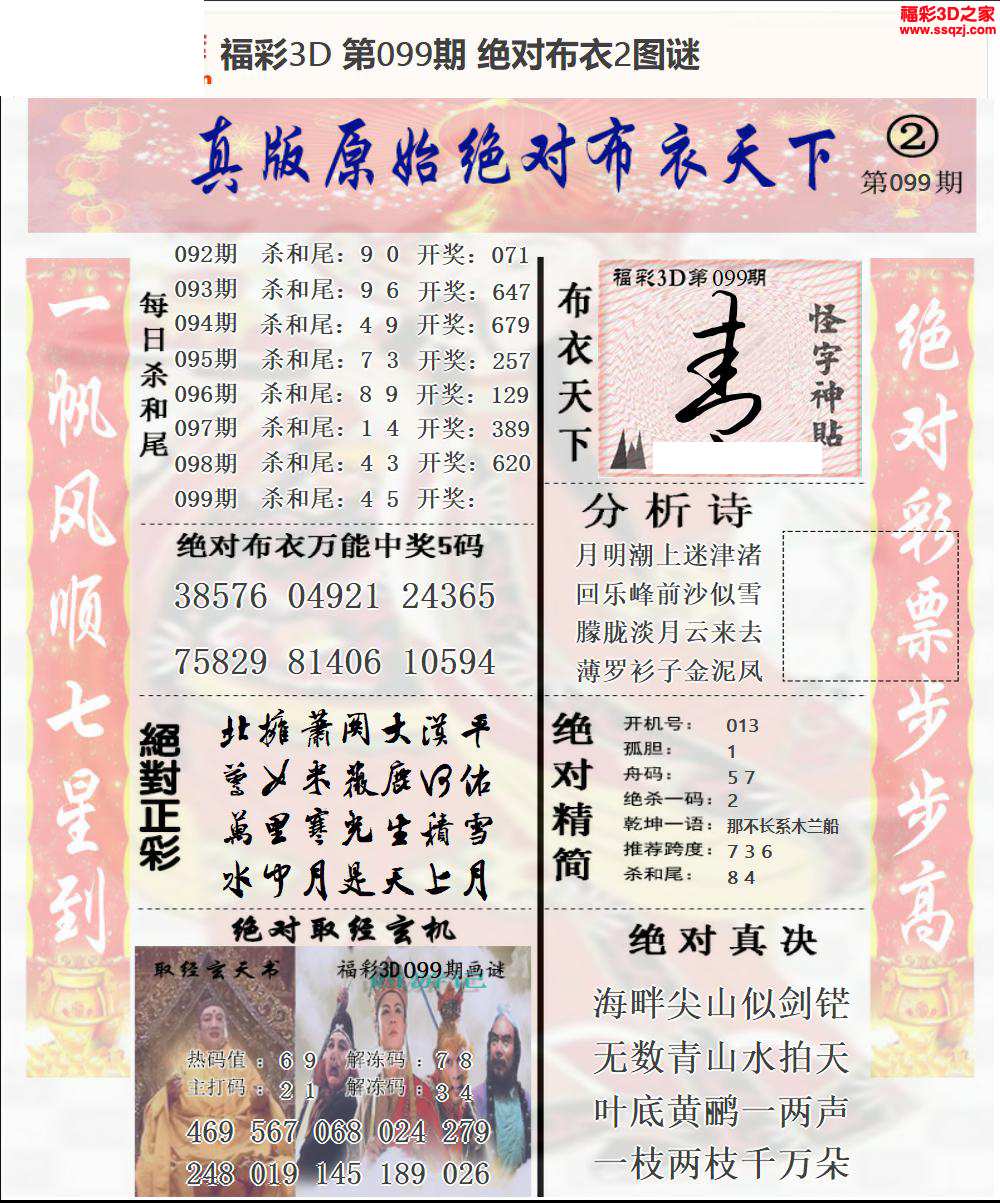 福彩3D之家
www.ssqzj.com
福彩3D 第099期 绝对布衣2图谜
真版原始绝对布衣天下
②
第099期
一帆风顺七星到
每日杀和尾
092期 杀和尾: 9 0 开奖: 071
093期 杀和尾: 9 6 开奖: 647
094期 杀和尾: 4 9 开奖: 679
095期 杀和尾: 7 3 开奖: 257
096期 杀和尾: 8 9 开奖: 129
097期 杀和尾: 1 4 开奖: 389
098期 杀和尾: 4 3 开奖: 620
099期 杀和尾: 4 5 开奖:
绝对布衣万能中奖5码
38576 04921 24365
75829 81406 10594
絕對正彩
萬里寒光生積雪
水中月是天上月
绝对取经玄机
取经玄天书
福彩3D099期画谜
热码值 : 6 9 解冻码 : 7 8
主打码 : 2 1 解冻码 : 3 4
469 567 068 024 279
248 019 145 189 026
布衣天下
福彩3D第099期
怪字神貼
分析诗
月明潮上迷津渚
回乐峰前沙似雪
朦胧淡月云来去
薄罗衫子金泥凤
绝对精简
开机号: 013
孤胆: 1
舟码: 5 7
绝杀一码: 2
乾坤一语: 那不长系木兰船
推荐跨度: 7 3 6
杀和尾: 8 4
绝对真决
海畔尖山似剑铓
无数青山水拍天
叶底黄鹂一两声
一枝两枝千万朵
绝对彩票步步高